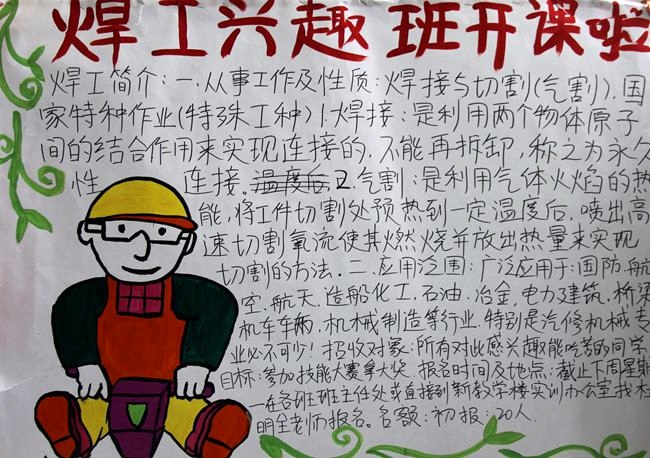 焊工兴趣班开课啦
焊工简介:一.从事工作及性质:焊接与切割(气割).国
家特种作业(特殊工种)1.焊接:是利用两个物体原子
间的结合作用来实现连接的.不能再拆卸,称之为永久
性连接。温度后2.气割:是利用气体火焰的热
能,将工件切割处预热到一定温度后,喷出高
速切割氧流使其燃烧并放出热量来实现
切割的方法.二.应用泛围:广泛应用于:国防.航
空.航天.造船化工.石油.冶金.电力建筑.桥梁
机车车辆.机械制造等行业.特别是汽修机械专
业必不可少!招收对象:所有对此感兴趣能吃苦的同学
目标:参加技能大赛拿大奖.报名时间及地点:截止下周星期
一在各班班主任处或直接到新教学楼实训办公室找杜
明全老师报名。名额:初报:20人.